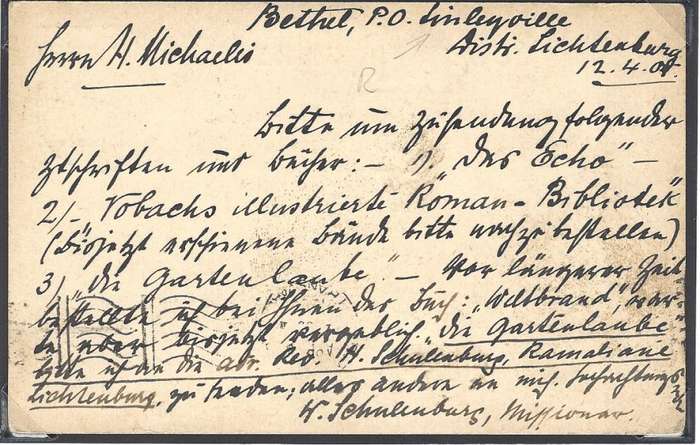 Bethel, P.O. Linleyville
Herrn H. Michaelis Distr. Lichtenburg
12.4.
Bitte um Zusendung folgender
Ztschriften und Bücher:- 1). "Das Echo" -
2/- Vobachs illustrierte Roman-Bibliotek"
(Bisjetzt erschienene Bände bitte nachzubestellen)
3) "die Gartenlaube". - Vor längerer Zeit
bestellte ich bei Ihnen das Buch: "Weltbrand", war-
te aber bisjetzt vergeblich. "die Gartenlaube"
bitte ich an die adr. Rev. H. Schulenburg, Ramaliane
Lichtenburg, zu senden; alles andere an mich.
W. Schulenburg, Missionar.